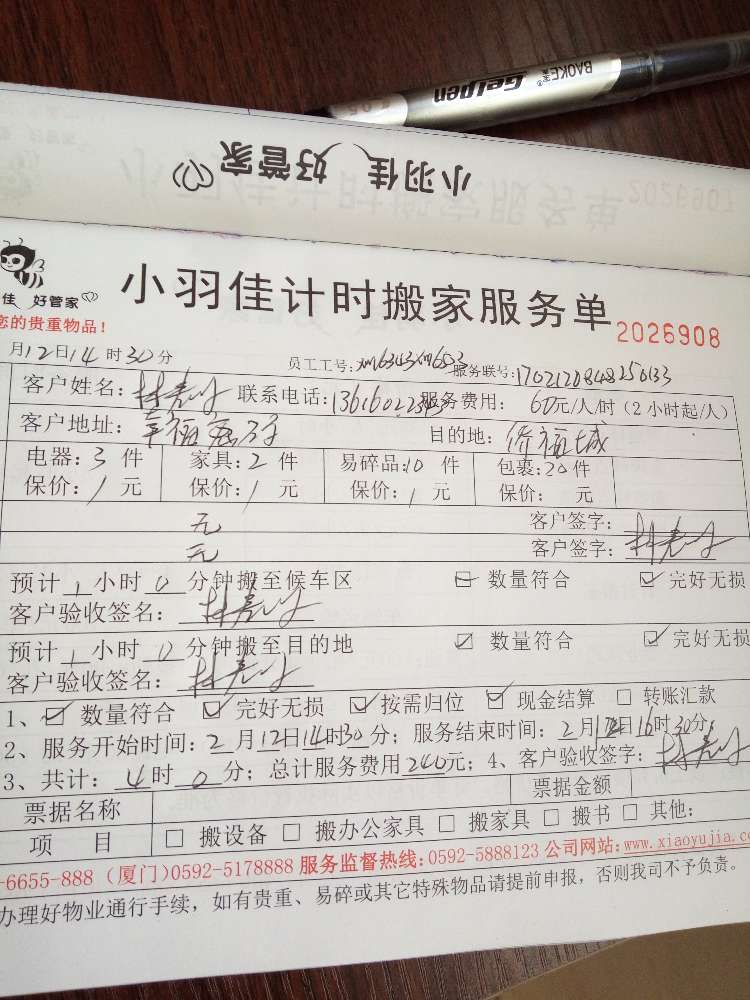 BAOKE宝克® Gelpen
小羽佳 好管家
小羽佳计时搬家服务单
2026908
佳 好管家
您的贵重物品！
月12日14时30分 员工工号: 服务联号:
客户姓名: 联系电话: 服务费用: 60元/人/时（2小时起/人）
客户地址: 目的地: 侨福城
电器:3件 家具:2件 易碎品:10件 包裹:20件
保价:1元 保价:1元 保价:1元 保价: 元
无 客户签字:
无 客户签字:
预计1小时0分钟搬至候车区 数量符合 完好无损
客户验收签名:
预计1小时0分钟搬至目的地 数量符合 完好无损
客户验收签名:
1、数量符合 完好无损 按需归位 现金结算 转账汇款
2、服务开始时间:2月12日14时30分; 服务结束时间:2月12日16时30分;
3、共计:4时0分; 总计服务费用240元; 4、客户验收签字:
票据名称 票据金额
项 目 搬设备 搬办公家具 搬家具 搬书 其他:
-6655-888（厦门）0592-5178888 服务监督热线:0592-5888123 公司网站:www.xiaoyujia.com
办理好物业通行手续，如有贵重、易碎或其它特殊物品请提前申报，否则我司不予负责。